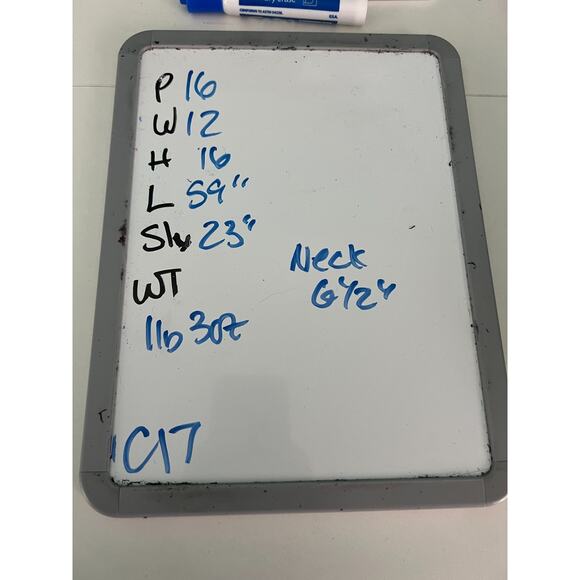 P 16
W 12
H 16
L 59"
Slv 23"
Neck
6 1/2"
WT
1lb 3oz
C17